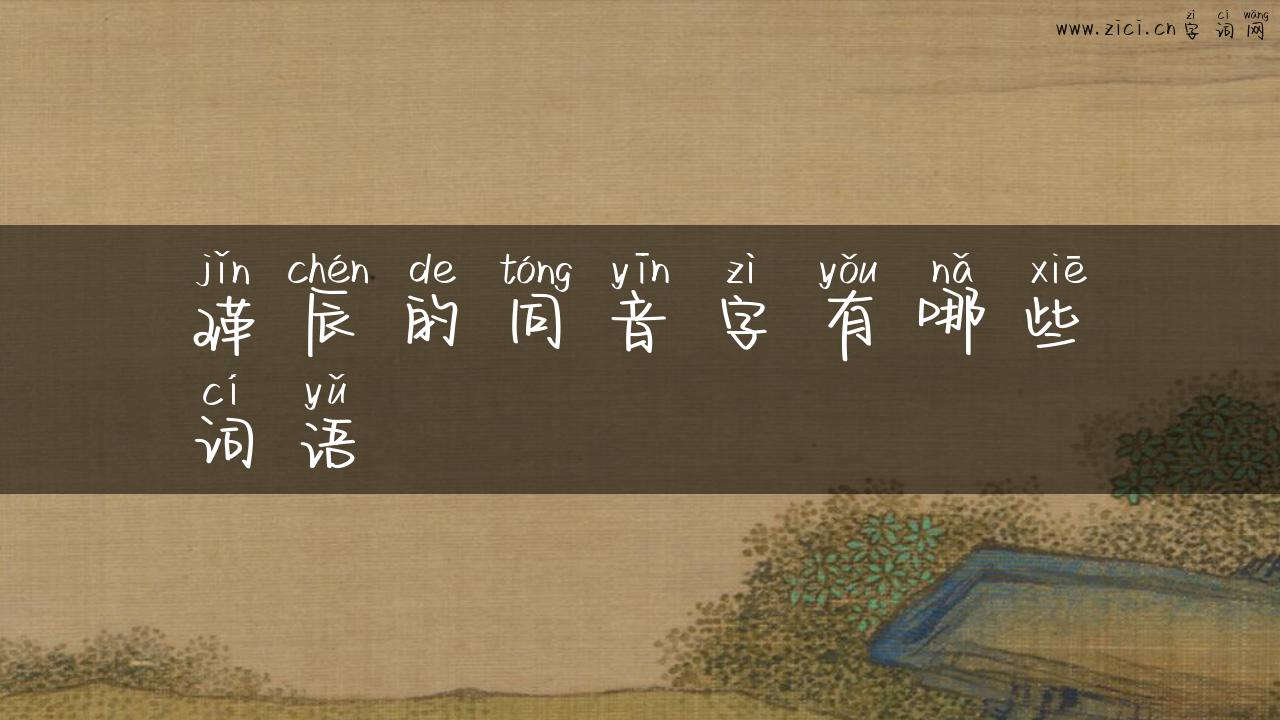 www.zici.cn 字词网
zì cí wǎng
jǐn chén de tóng yīn zì yǒu nǎ xiē
谨辰的同音字有哪些
cí yǔ
词语